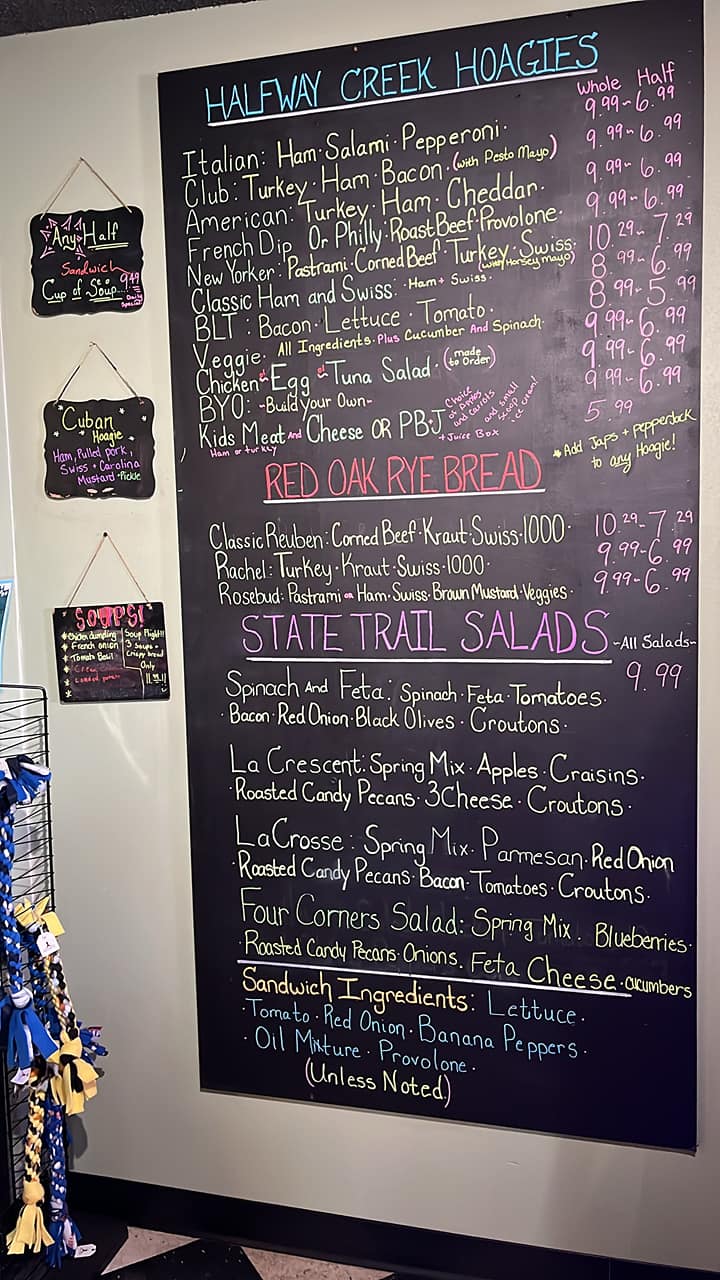 HALFWAY CREEK HOAGIES
Whole Half
Italian: Ham · Salami · Pepperoni · 9.99 - 6.99
Club: Turkey · Ham · Bacon · (with Pesto Mayo) 9.99 - 6.99
American: Turkey · Ham · Cheddar · 9.99 - 6.99
French Dip Or Philly · Roast Beef · Provolone · 9.99 - 6.99
New Yorker: Pastrami · Corned Beef · Turkey · Swiss · 10.29 - 7.29
(with Horsey mayo)
Classic Ham and Swiss: · Ham + Swiss · 8.99 - 6.99
BLT: Bacon · Lettuce · Tomato · 8.99 - 5.99
Veggie · All Ingredients · Plus Cucumber And Spinach · 9.99 - 6.99
Chicken or Egg or Tuna Salad · (made to Order) 9.99 - 6.99
BYO: - Build your Own - 9.99 - 6.99
Kids Meat And Cheese OR PB·J 5.99
Ham or turkey
+ Juice Box
Choice of
and carrots
and small
scoop
ice cream!
* Add Japs + pepperJack
to any Hoagie!
RED OAK RYE BREAD
Classic Reuben: Corned Beef · Kraut · Swiss · 1000 · 10.29 - 7.29
Rachel: Turkey · Kraut · Swiss · 1000 · 9.99 - 6.99
Rosebud: Pastrami or Ham · Swiss · Brown Mustard · Veggies · 9.99 - 6.99
STATE TRAIL SALADS - All Salads -
9.99
Spinach And Feta: Spinach · Feta · Tomatoes ·
· Bacon · Red Onion · Black Olives · Croutons ·
La Crescent: Spring Mix · Apples · Craisins ·
· Roasted Candy Pecans · 3 Cheese · Croutons ·
La Crosse: Spring Mix · Parmesan · Red Onion
· Roasted Candy Pecans · Bacon · Tomatoes · Croutons ·
Four Corners Salad: Spring Mix · Blueberries ·
· Roasted Candy Pecans · Onions · Feta Cheese · cucumbers
Sandwich Ingredients: Lettuce ·
· Tomato · Red Onion · Banana Peppers ·
· Oil Mixture · Provolone ·
(Unless Noted)
Any Half
Sandwich
Cup of Soup... 9.49
Daily
Special
Cuban
Hoagie
Ham, Pulled pork,
Swiss + Carolina
Mustard · Pickle
SOUPS!
* Chicken dumpling
* French onion
* Tomato Basil
* Loaded potato
Soup Flight!!
3 soups +
Crispy bread
Only